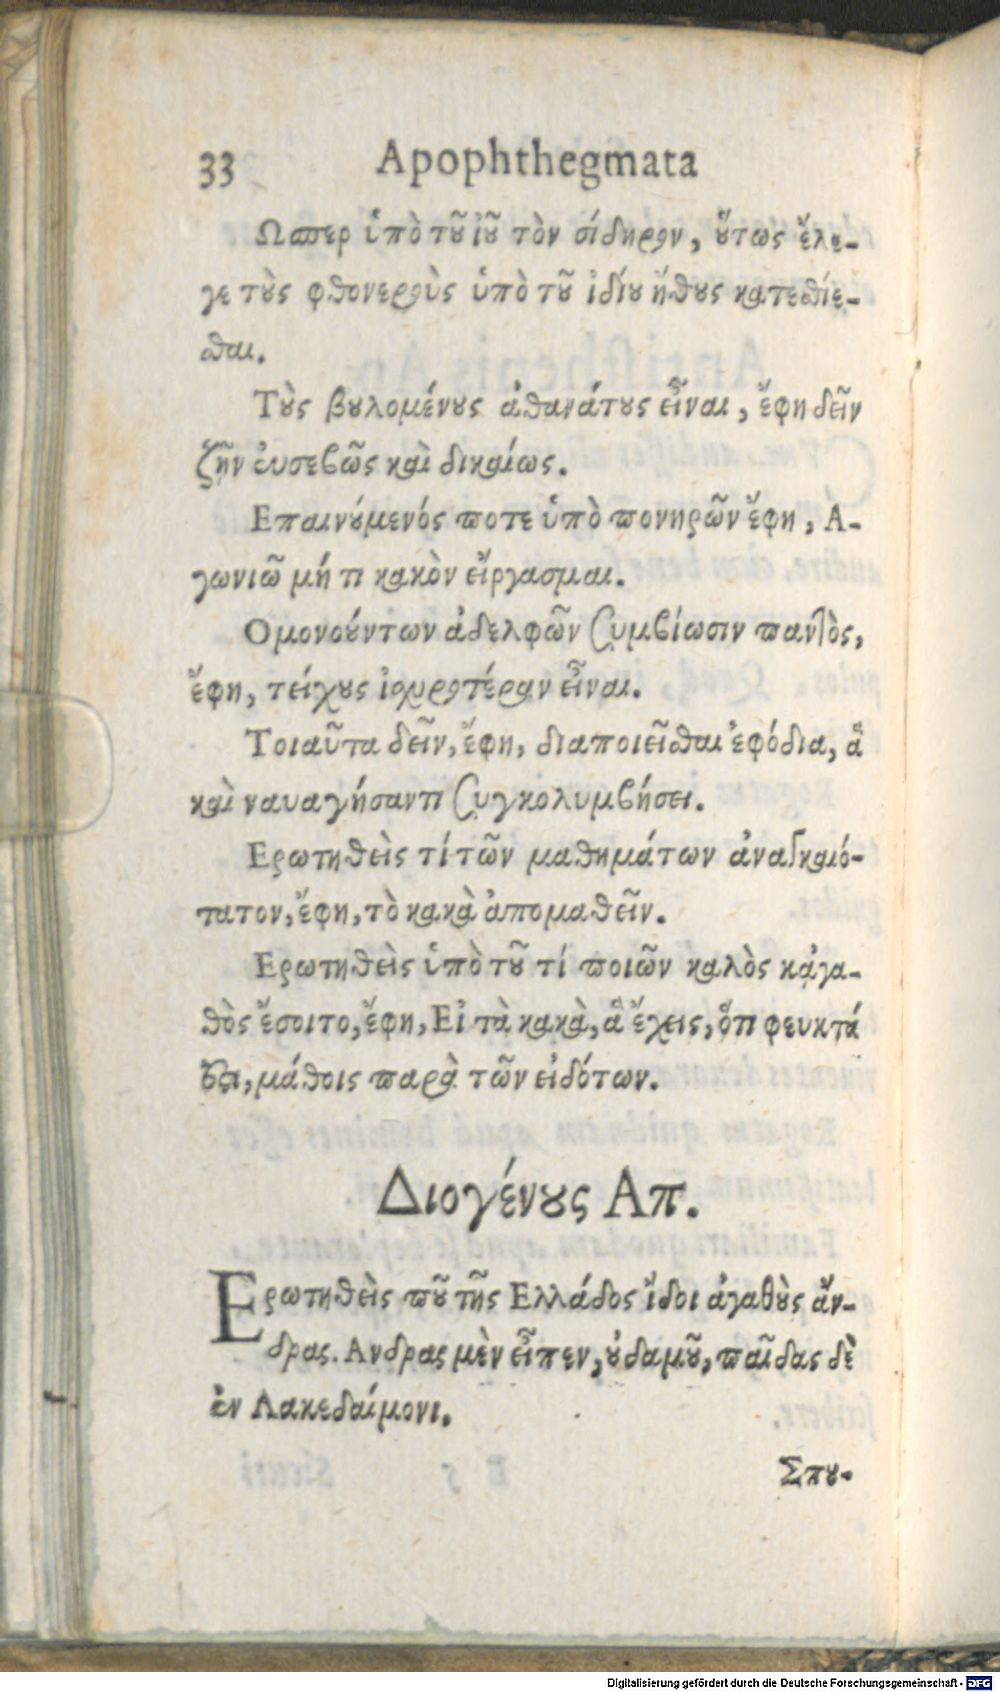 33 Apophthegmata
Ωσπερ ὑπὸ τȣ͂ ἰȣ͂ τὸν σίδηρον, ȣ̔́τως ἔλε-
γε τȣ̀ς φθονερȣ̀ς ὑπὸ τȣ͂ ἰδίȣ ἤθȣς κατεσθίε-
σθαι.
Τȣ̀ς βȣλομένȣς ἀθανάτȣς εἶναι, ἔφη δεῖν
ζῇν ἐυσεβῶς καὶ δικαίως.
Επαινȣ́μενός ποτε ὑπὸ πονηρῶν ἔφη, Α-
γωνιῶ μή τι κακὸν εἴργασμαι.
Ομονούντων ἀδελφῶν συμβίωσιν παντὸς,
ἔφη, τείχȣς ἰσχυροτέραν εἶναι.
Τοιαῦτα δεῖν, ἔφη, διαποιεῖσθαι ἐφόδια, ἃ
καὶ ναυαγήσαντι συγκολυμβήσει.
Ερωτηθεὶς τί τῶν μαθημάτων ἀναγκαιό-
τατον, ἔφη, τὸ κακὰ ἀπομαθεῖν.
Ερωτηθεὶς ὑπὸ τȣ͂ τί ποιῶν καλὸς κἀγα-
θὸς ἔσοιτο, ἔφη, Εἰ τὰ κακὰ, ἃ ἔχεις, ὅτι φευκτά
ἐστι, μάθοις παρὰ τῶν εἰδότων.
Διογένȣς Απ.
Ερωτηθεὶς πȣ͂ τῆς Ελλάδος ἴδοι ἀγαθȣ̀ς ἄν-
δρας. Ανδρας μὲν εἶπεν, ȣ̓δαμȣ͂, παῖδας δὲ
ἐν Λακεδαίμονι.
Σπȣ-
Digitalisierung gefördert durch die Deutsche Forschungsgemeinschaft - DFG